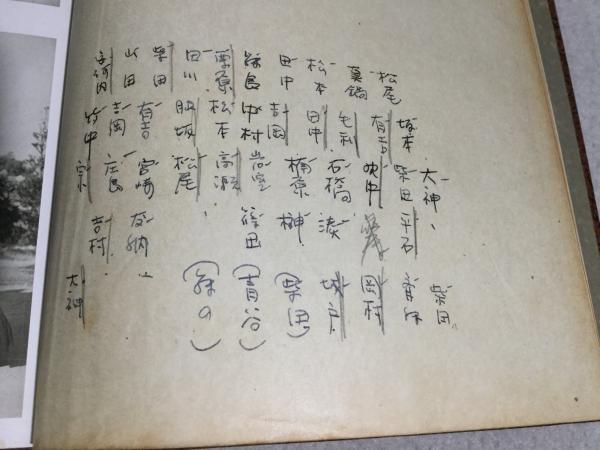 大神、柴田
松尾 坂本 柴田 平石
真鍋 有吉 畑中 岡村
松本 毛利 石橋 湊 城戸
田中 田中 楠原 榊 (柴田)
吉岡 岩室 篠田 (青谷)
飯島 中村
栗原 松本 高瀬、
田川 脇坂 松尾
柴田 有吉 宮崎 友納、
山田 吉岡 庄島 吉村、
宇河内 竹中 宗 大神